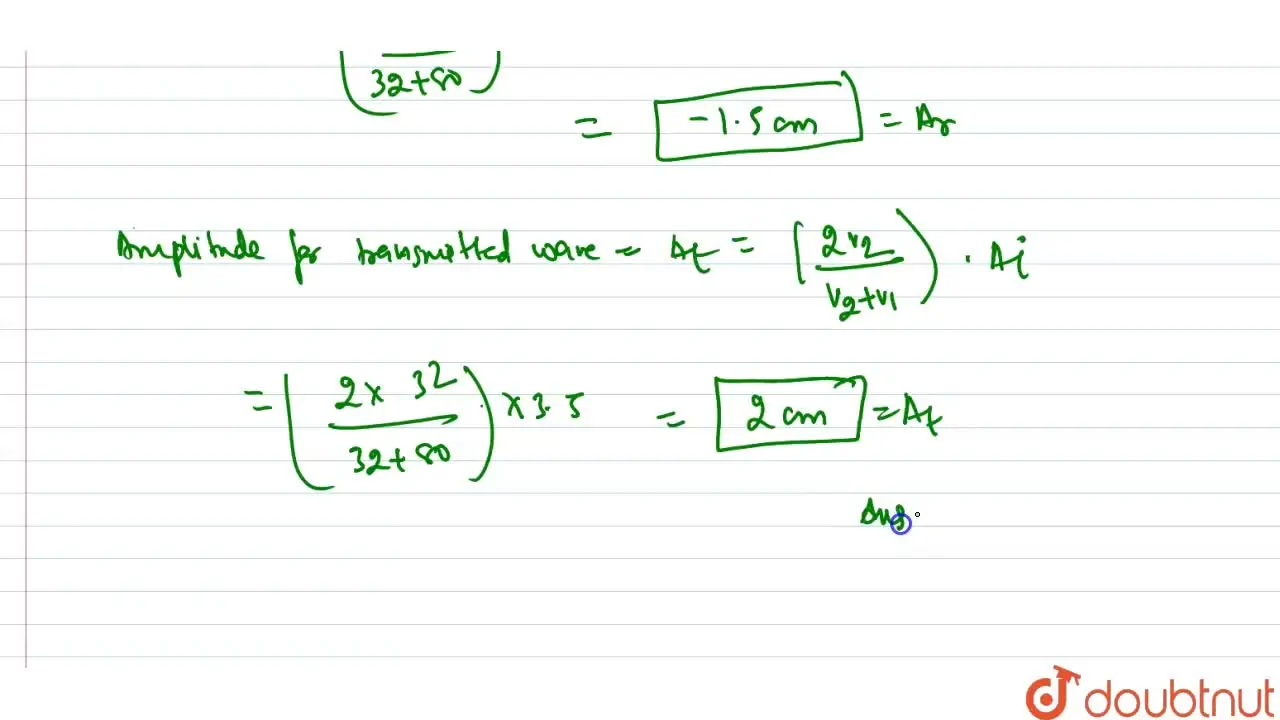 32+80
= -1.5 cm = Ar
Amplitude for transmitted wave = At = (2v2 / v2+v1) . Ai
= (2x 32 / 32+80) x 3.5 = 2 cm = At
Ans.
doubtnut